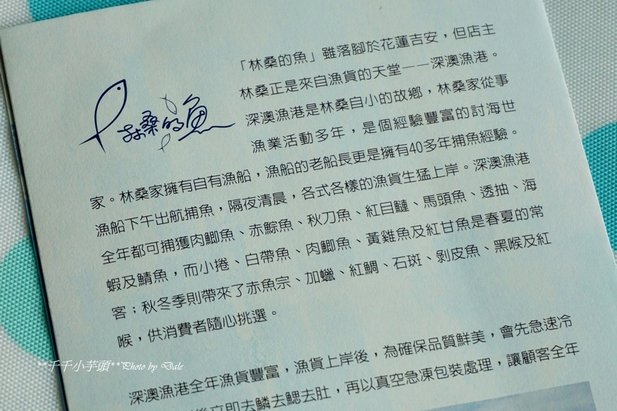 「林桑的魚」雖落腳於花蓮吉安，但店主
林桑正是來自漁貨的天堂——深澳漁港。
深澳漁港是林桑自小的故鄉，林桑家從事
漁業活動多年，是個經驗豐富的討海世
林桑的魚
家。林桑家擁有自有漁船，漁船的老船長更是擁有40多年捕魚經驗。
漁船下午出航捕魚，隔夜清晨，各式各樣的漁貨生猛上岸。深澳漁港
全年都可捕獲肉鯽魚、赤鯮魚、秋刀魚、紅目鰱、馬頭魚、透抽、海
蝦及鯖魚，而小捲、白帶魚、肉鯽魚、黃雞魚及紅甘魚是春夏的常
客；秋冬季則帶來了赤魚宗、加蠟、紅鯛、石斑、剝皮魚、黑喉及紅
喉，供消費者隨心挑選。
深澳漁港全年漁貨豐富，漁貨上岸後，為確保品質鮮美，會先急速冷
後立即去鱗去鰓去肚，再以真空急凍包裝處理，讓顧客全年
**千千小芋頭**Photo by Dale